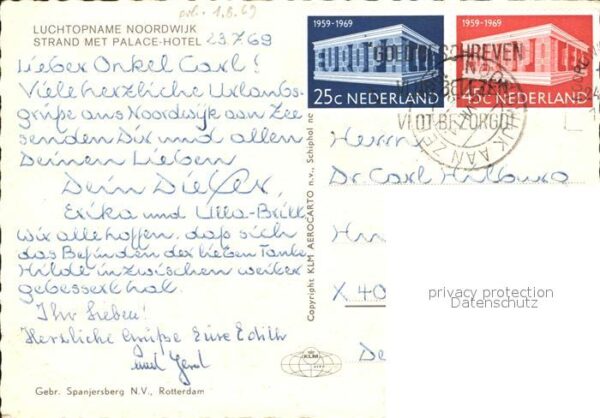 erh. 1.8.69
LUCHTOPNAME NOORDWIJK
STRAND MET PALACE-HOTEL 23.7.69
Lieber Onkel Carl!
Viele herzliche Urlaubs-
grüße aus Noordwijk aan Zee
senden Dir und allen
Deinen Lieben
Dein Dieter,
Erika und Ulla-Britt
wir alle hoffen, daß sich
das Befinden der lieben Tante
Hilde inzwischen weiter
gebessert hat.
Ihr Lieben!
Herzliche Grüße Eure Edith
und Gerd
KLM
Gebr. Spanjersberg N.V., Rotterdam
Copyright KLM AEROCARTO n.v., Schiphol
1959-1969
25c NEDERLAND
1959-1969
45c NEDERLAND
GOED GESCHREVEN
VLOT BEZORGD
AAN ZEE
Herrn
Dr. Carl
X 40
privacy protection
Datenschutz